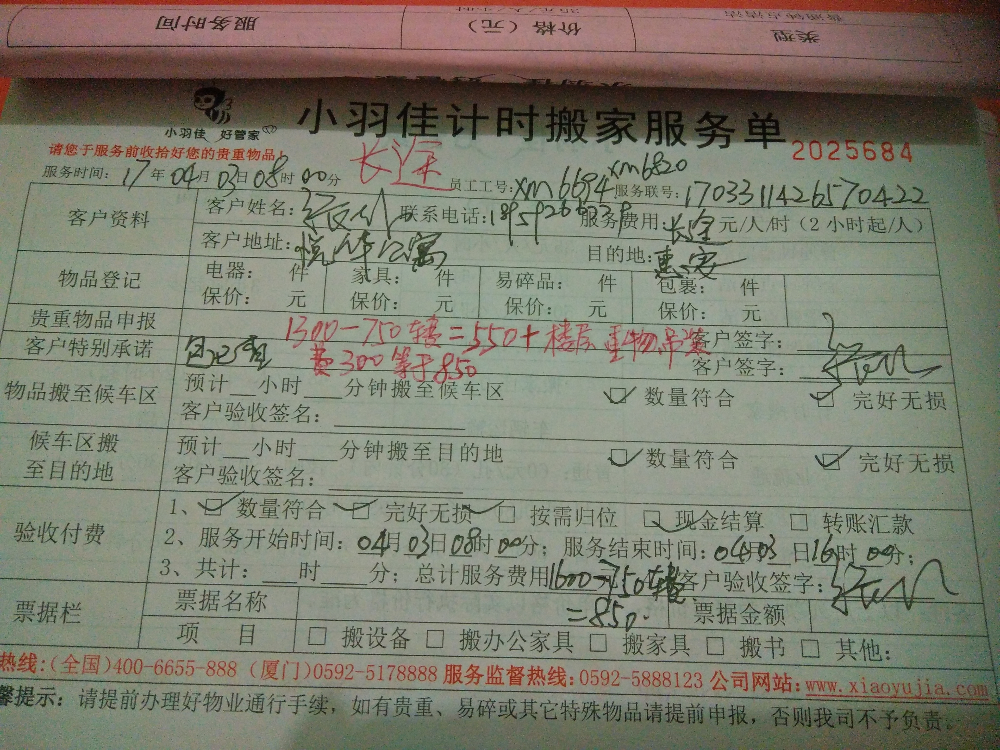 服务时间 价格（元） 类型
小羽佳 好管家
小羽佳计时搬家服务单
2025684
请您于服务前收拾好您的贵重物品！
长途
xm6820
服务时间：17年04月03日08时00分 员工工号：xm6684 服务联号：1703311426570422
客户资料
客户姓名： 联系电话： 服务费用：长途元/人/时（2小时起/人）
客户地址：悦华公寓 目的地：惠安
物品登记
电器： 件 家具： 件 易碎品： 件 包裹： 件
保价： 元 保价： 元 保价： 元 保价： 元
贵重物品申报 1300-750转=550+楼层重物吊装 客户签字：
客户特别承诺 费300等于850 客户签字：
物品搬至候车区
预计__小时___分钟搬至候车区 数量符合 完好无损
客户验收签名：
候车区搬至目的地
预计__小时___分钟搬至目的地 数量符合 完好无损
客户验收签名：
验收付费
1、数量符合 完好无损 按需归位 现金结算 转账汇款
2、服务开始时间：04月03日08时00分；服务结束时间：04月03日16时00分；
3、共计：___时___分；总计服务费用1600-750转 客户验收签字：
=850.
票据栏
票据名称 票据金额
项 目 □ 搬设备 □ 搬办公家具 □ 搬家具 □ 搬书 □ 其他：
热线：（全国）400-6655-888（厦门）0592-5178888 服务监督热线：0592-5888123 公司网站：www.xiaoyujia.com
馨提示：请提前办理好物业通行手续，如有贵重、易碎或其它特殊物品请提前申报，否则我司不予负责。